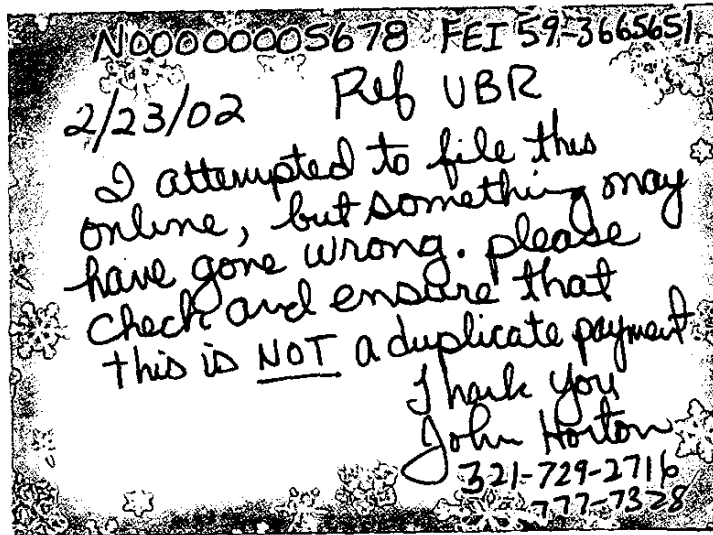 N00000005678 FEI 59-3665651
2/23/02 Ref UBR
I attempted to file this
online, but something may
have gone wrong. please
check and ensure that
this is NOT a duplicate payment.
Thank you
John Horton
321-729-2716
777-7328